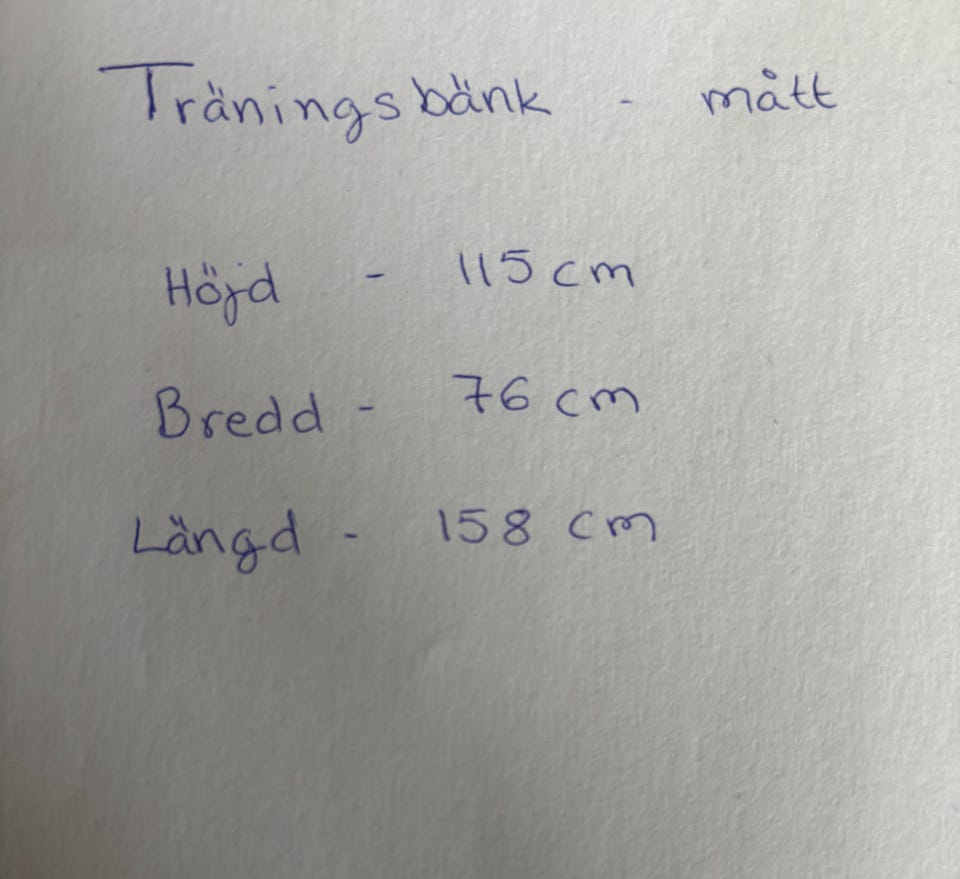 Träningsbänk - mått
Höjd - 115 cm
Bredd - 76 cm
Längd - 158 cm